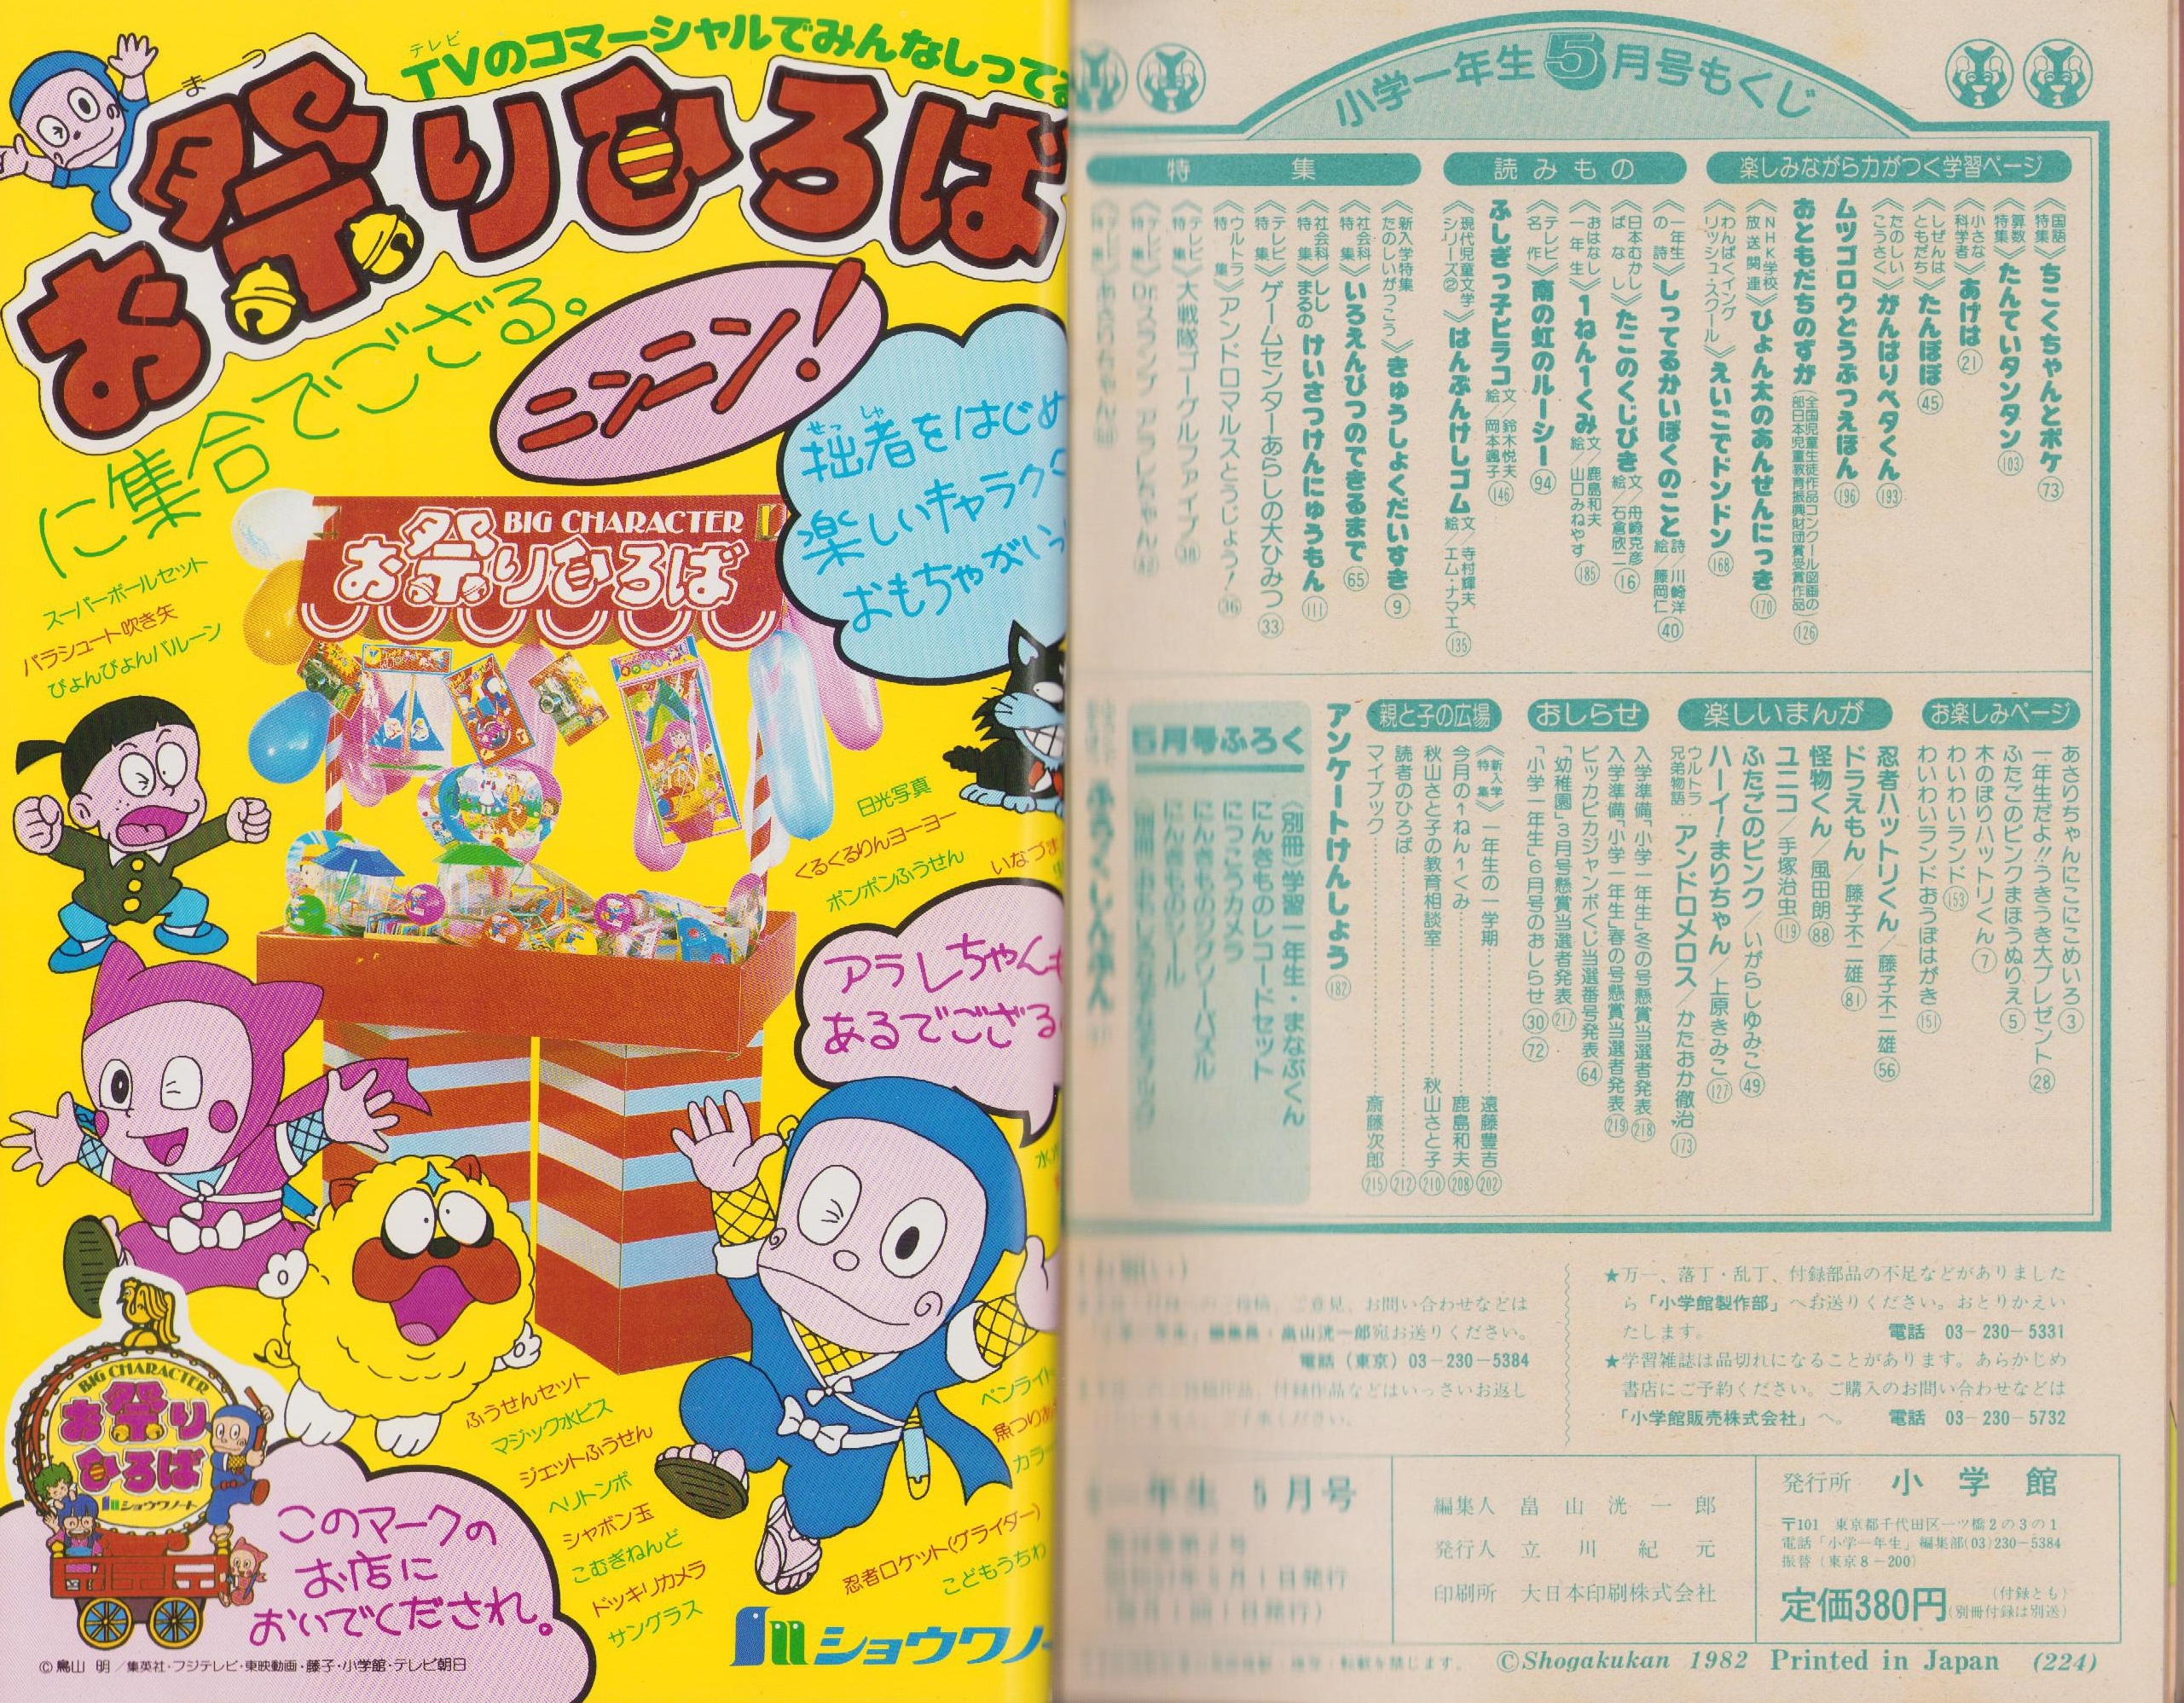 TVのコマーシャルでみんなしって
テレビ
お祭りひろば
まつ
に集合でござる。
ニンニン！
拙者をはじめ
せっしゃ
楽しいキャラク
おもちゃがいっ
BIG CHARACTER
お祭りひろば
スーパーボールセット
パラシュート吹き矢
ぴょんぴょんバルーン
日光写真
くるくるりんヨーヨー
ボンボンふうせん
いなづま
アラレちゃんも
あるでござる
ふうせんセット
マジック水ピス
ジェットふうせん
ヘリトンボ
シャボン玉
こむぎねんど
ドッキリカメラ
サングラス
ペンライト
魚つり
カラー
忍者ロケット(グライダー)
こどもうちわ
BIG CHARACTER
お祭りひろば
ショウワノート
このマークの
お店に
おいでくだされ。
ショウワノー
©鳥山 明／集英社・フジテレビ・東映動画・藤子・小学館・テレビ朝日
小学一年生5月号もくじ
楽しみながら力がつく学習ページ
《国語特集》ちこくちゃんとポケ 73
《算数特集》たんていタンタン 103
《小さな科学者》あげは 21
《しぜんはともだち》たんぽぽ 45
《たのしいこうさく》がんばりベタくん 193
ムツゴロウどうぶつえほん 196
おともだちのずが(全国児童生徒作品コンクール図画の部日本児童教育振興財団賞受賞作品) 126
《NHK学校放送関連》ひょん太のあんぜんにっき 170
《わんぱくイングリッシュ・スクール》えいごでドンドン 168
読みもの
《一年生の詩》しってるかいぼくのこと 詩／川崎洋 絵／藤岡仁 40
《日本むかしばなし》たこのくじびき 文／舟崎克彦 絵／石倉欣二 16
《おはなし一年生》1ねん1くみ 文／鹿島和夫 絵／山口みねやす 185
《テレビ名作》南の虹のルーシー 94
ふしぎっ子ピラコ 文／鈴木悦夫 絵／岡本颯子 146
《現代児童文学シリーズ②》はんぶんけしゴム 文／寺村輝夫 絵／エム・ナマエ 135
特集
《新入学特集たのしいがっこう》きゅうしょくだいすき 9
《社会科特集》いろえんぴつのできるまで 65
《社会科特集》ししまるのけいさつけんにゅうもん 111
《テレビ特集》ゲームセンターあらしの大ひみつ 33
《ウルトラ特集》アンドロマルスとうじょう！ 36
《テレビ特集》大戦隊ゴーグルファイブ 38
《テレビ特集》Dr.スランプ アラレちゃん 42
お楽しみページ
あさりちゃんにこにこめいろ 3
一年生だよ!!うきうき大プレゼント 28
ふたごのピンクまほうぬりえ 5
木のぼりハットリくん 7
わいわいランド 153
わいわいランドおうぼはがき 151
楽しいまんが
忍者ハットリくん／藤子不二雄 56
ドラえもん／藤子不二雄 81
怪物くん／風田朗 88
ユニコ／手塚治虫 119
ふたごのピンク／いがらしゆみこ 49
ハーイ！まりちゃん／上原きみこ 127
ウルトラ兄弟物語：アンドロメロス／かたおか徹治 173
おしらせ
入学準備「小学一年生」冬の号懸賞当選者発表 218
入学準備「小学一年生」春の号懸賞当選者発表 219
ピッカピカジャンボくじ当選番号発表 64
「幼稚園」3月号懸賞当選者発表 217
「小学一年生」6月号のおしらせ 30 72
親と子の広場
《新入学特集》一年生の一学期 遠藤豊吉 202
今月の1ねん1くみ 鹿島和夫 208
秋山さと子の教育相談室 秋山さと子 210
読者のひろば 212
マイブック 斎藤次郎 215
アンケートけんしょう 182
5月号ふろく
《別冊》学習一年生・まなぶくん
にんきものレコードセット
にっこうカメラ
にんきものツリーパズル
にんきものシール
★万一、落丁・乱丁、付録部品の不足などがありました
ら「小学館製作部」へお送りください。おとりかえい
たします。 電話 03-230-5331
★学習雑誌は品切れになることがあります。あらかじめ
書店にご予約ください。ご購入のお問い合わせなどは
「小学館販売株式会社」へ。 電話 03-230-5732
ご意見、お問い合わせなどは
編集長・畠山洸一郎宛お送りください。
電話（東京）03-230-5384
付録作品などはいっさいお返し
一年生 5月号
編集人 畠山洸一郎
発行人 立川紀元
印刷所 大日本印刷株式会社
発行所 小学館
〒101 東京都千代田区一ツ橋2の3の1
電話「小学一年生」編集部(03)230-5384
振替（東京8-200）
定価380円（付録とも）（別冊付録は別送）
©Shogakukan 1982 Printed in Japan (224)